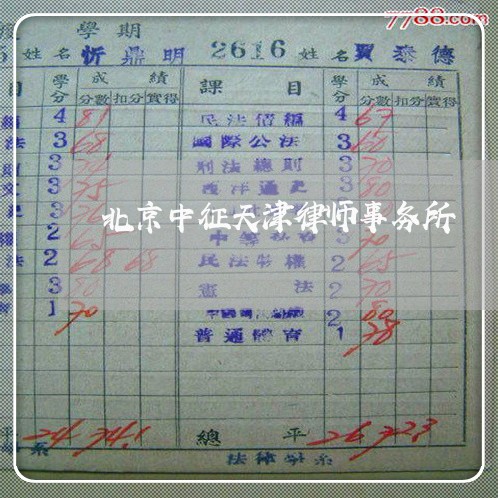 7788.com
學期
姓名 忻鼎明 2616 姓名 賈泰德
目 學分 成績 課目 學分 成績
分數 扣分 實得 分數 扣分 實得
4 81 民法債編 4 67
法 3 68 國際公法 3 60
3 刑法總則 3 70
3 75 西洋通史 3 80
3
北京中征天津律师事务所
2 65 3 70
法 2 68 68 民法物權 2 65
3 80 憲法 2 70
1 70 2 80
普通體育 1 78
平 24 74.1 總平 26 72.3
系 法律學系